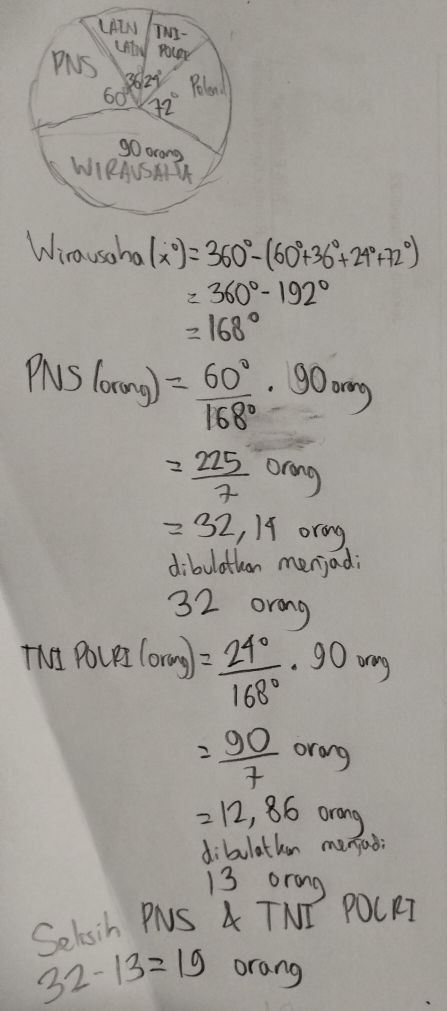 LAIN LAIN
TNI-POLRI
PNS
36°
24°
60°
72°
90 orang
WIRAUSAHA
Wirausaha (x°) = 360° - (60°+36°+24°+72°)
= 360° - 192°
= 168°
PNS (orang) = 60°/168° . 90 orang
= 225/7 orang
= 32,14 orang
dibulatkan menjadi
32 orang
TNI POLRI (orang) = 24°/168° . 90 orang
= 90/7 orang
= 12,86 orang
dibulatkan menjadi
13 orang
Selisih PNS & TNI POLRI
32-13=19 orang